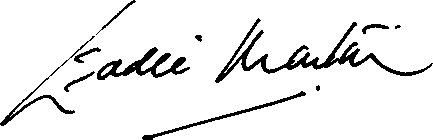 Eadie Martin